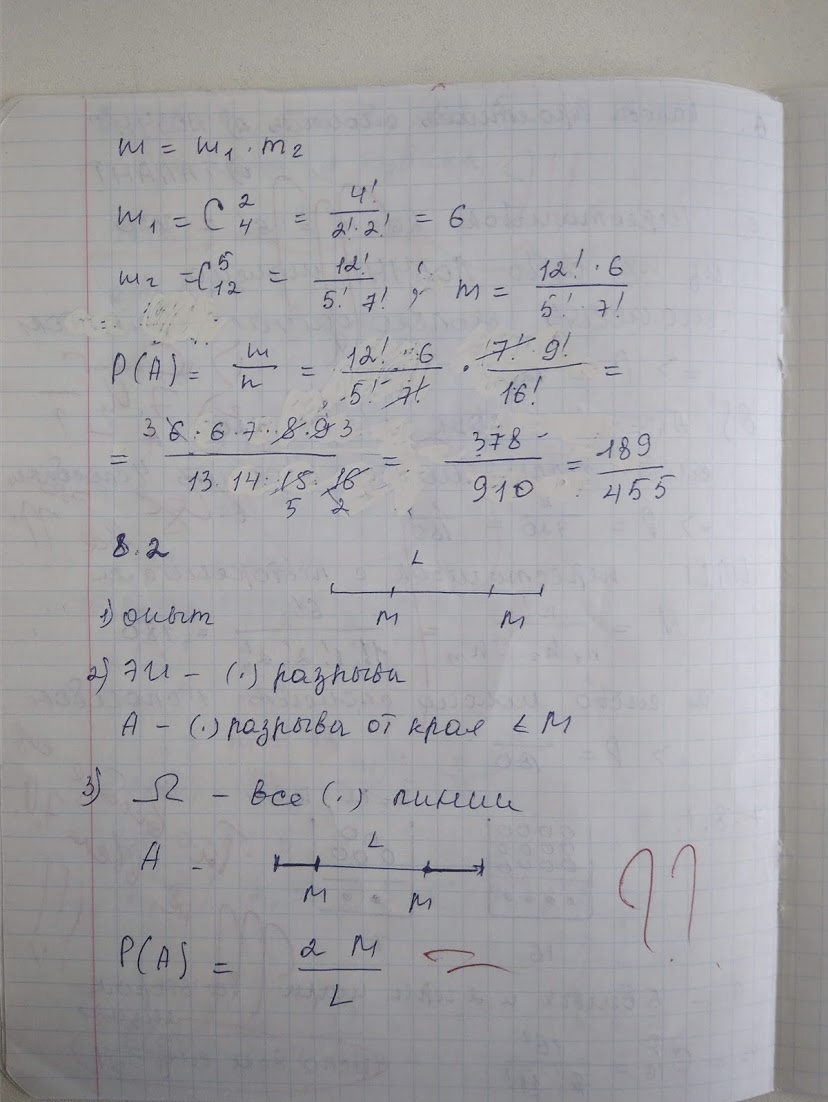 m = m₁ · m₂
m₁ = C₄² = 4! / (2! · 2!) = 6
m₂ = C₁₂⁵ = 12! / (5! 7!) ; m = (12! · 6) / (5! · 7!)
P(A) = m/n = (12! · 6) / (5! 7!) · (7! 9!) / 16! =
= (3 6 · 6 · 7 · 8 · 9 3) / (13 · 14 · 15 · 16) = 378 / 910 = 189 / 455
5 2
8.2
L
1) опыт M M
2) ЭИ – (·) разрыва
A – (·) разрыва от края ≤ M
3) Ω – все (·) линии
L
A –
M M
??
P(A) = 2 M / L